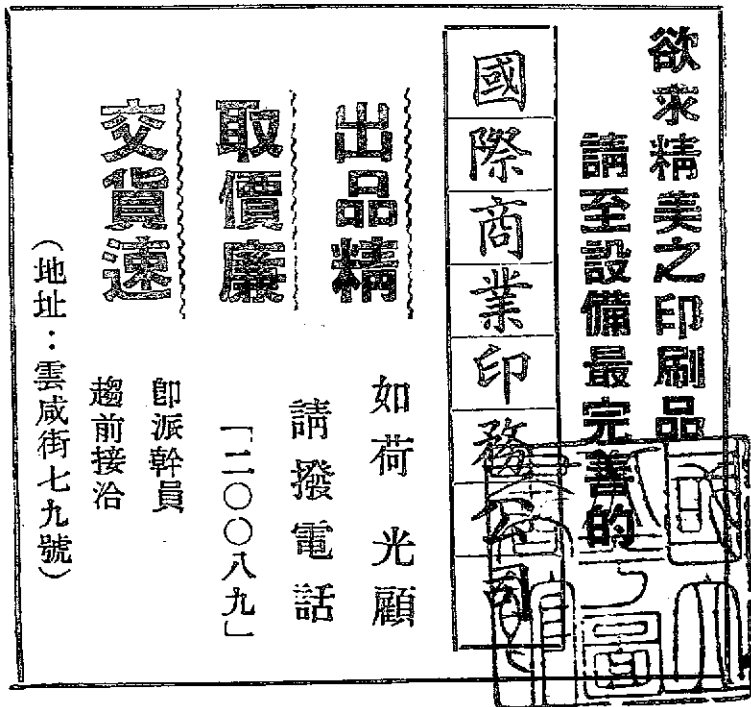 欲求精美之印刷品
請至設備最完善的
國際商業印務公司
出品精
取價廉
交貨速
如荷 光顧
請撥電話
「二〇〇八九」
卽派幹員
趨前接洽
(地址：雲咸街七九號)